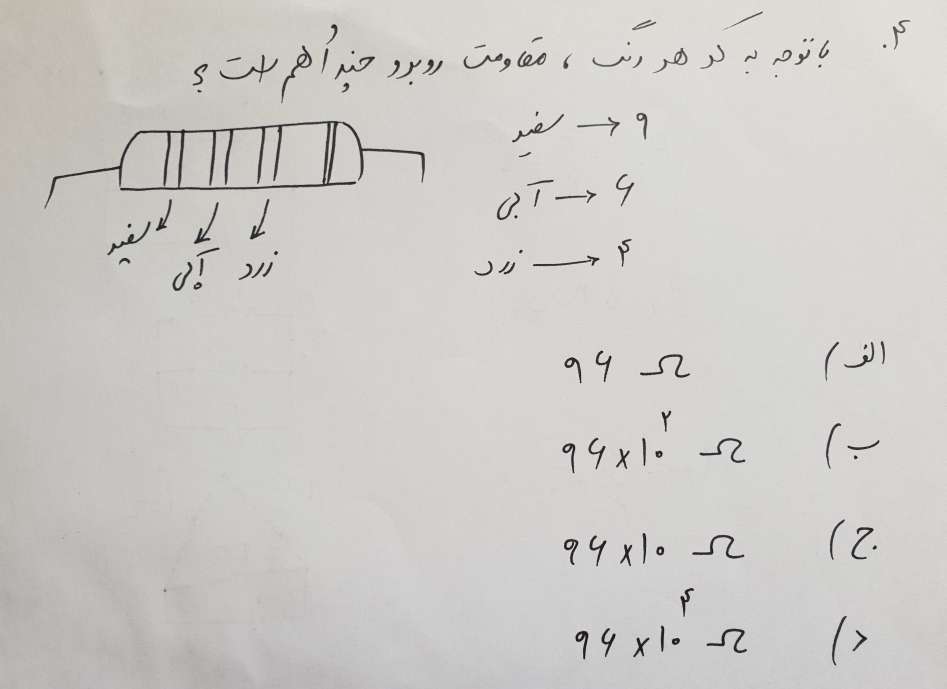 ۴. با توجه به کد هر رنگ ، مقاومت روبرو چند اُهم است ؟
۹ → سفید
۶ → آبی
۴ → زرد
سفید
آبی
زرد
الف) ۹۶ Ω
ب) ۹۶×۱۰^۲ Ω
ج) ۹۶×۱۰ Ω
د) ۹۶×۱۰^۴ Ω